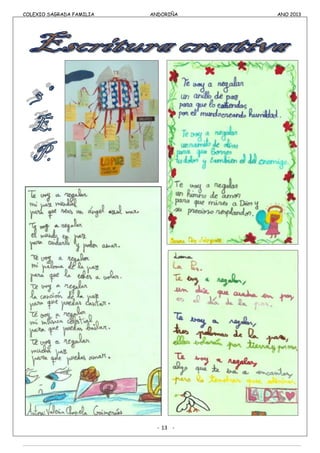 COLEXIO SAGRADA FAMILIA ANDORIÑA ANO 2013
Escritura creativa
3º
E.
P.
LA PAZ
Te voy a regalar
un anillo de paz
para que lo extiendas
por el mundo creando humildad.
Te voy a regalar
un ramo de olivo
para que borres
tu dolor y también el del enemigo.
Te voy a regalar
un horno de amor
para que mires a Dios y
su precioso resplandor.
Te voy a regalar
mi paz
para que seas un ángel
Te voy a regalar
el mundo en paz
para cantarle y poder amar.
Te voy a regalar
mi paloma de la paz
para que la eches a volar.
Te voy a regalar
la canción de la paz
para que puedas cantar.
Te voy a regalar
mi música
para que puedas bailar.
Te voy a regalar
mucha paz
para que puedas amar.
Autora: Valeria
La Paz.
Te voy a regalar,
un día que acaba en paz,
es el día de la paz.
Te voy a regalar,
tres palomas de la paz,
ellas volarán por tierra y por mar.
Te voy a regalar,
algo que te va a encantar,
pero lo tendrás que
LA PAZ
- 13 -